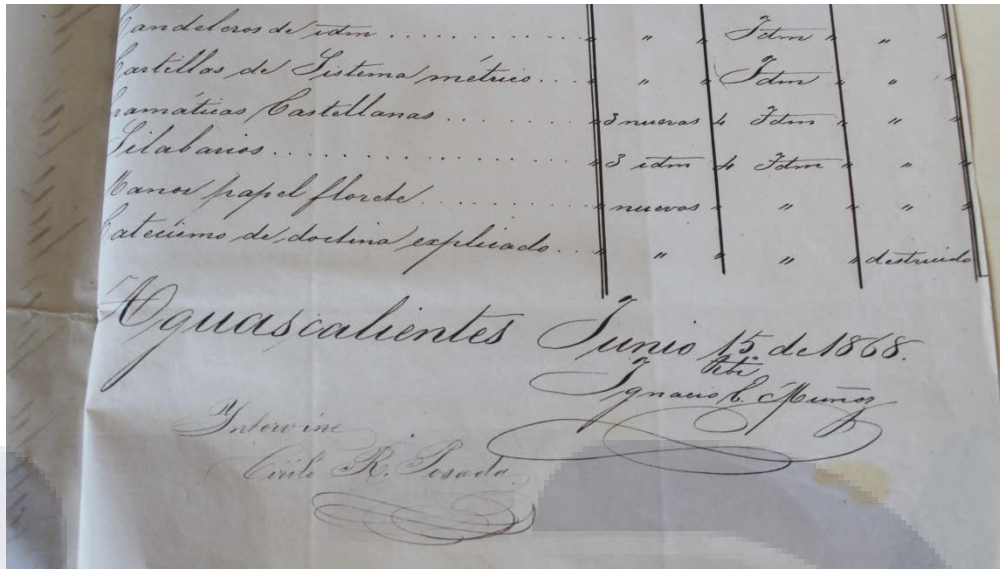 Candeleros de idm . . . . . . . . . . . . . " " " Idm " " "
Cartillas de Sistema métrico . . . " " " Idm " " "
Gramáticas Castellanas . . . . . . . . " 3 nuevas " 4 Idm " " "
Silabarios . . . . . . . . . . . . . . . . . . " 3 idm " 4 Idm " " "
Manos papel florete . . . . . . . . . . " nuevos " " " " "
Catecismo de doctina explicado . . . " " " " " destruido
Aguascalientes Junio 15 de 1868.
Rbi.
Ignacio C. Muñoz
Intervine
Cirilo R. Posada